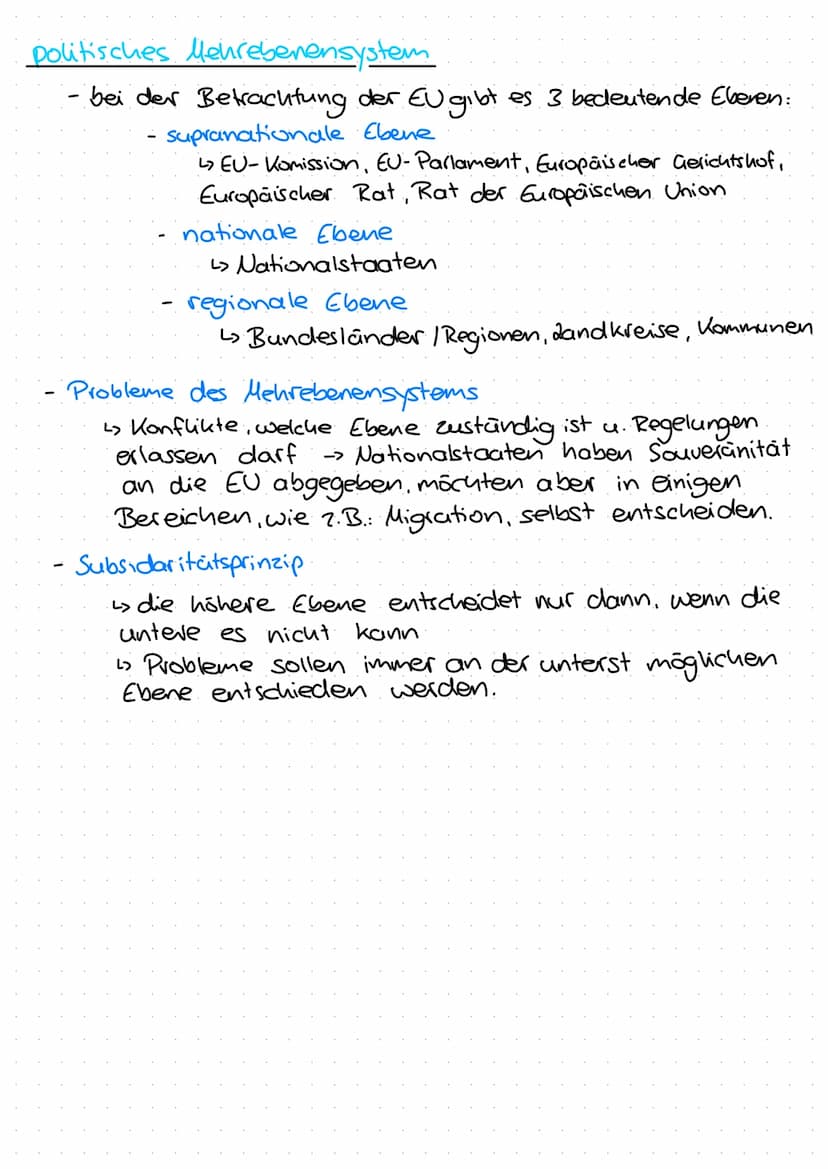 politisches Mehrebenensystem
- bei der Betrachtung der EU gibt es 3 bedeutende Ebenen:
- supranationale Ebene
↳ EU-Komission, EU-Parlament, Europäischer Gerichtshof,
Europäischer Rat, Rat der Europäischen Union
- nationale Ebene
↳ Nationalstaaten
- regionale Ebene
↳ Bundesländer / Regionen, Landkreise, Kommunen
- Probleme des Mehrebenensystems
↳ Konflikte, welche Ebene zuständig ist u. Regelungen
erlassen darf → Nationalstaaten haben Souveränität
an die EU abgegeben, möchten aber in einigen
Bereichen, wie z.B.: Migration, selbst entscheiden.
- Subsidaritätsprinzip
↳ die höhere Ebene entscheidet nur dann, wenn die
untere es nicht kann
↳ Probleme sollen immer an der unterst möglichen
Ebene entschieden werden.